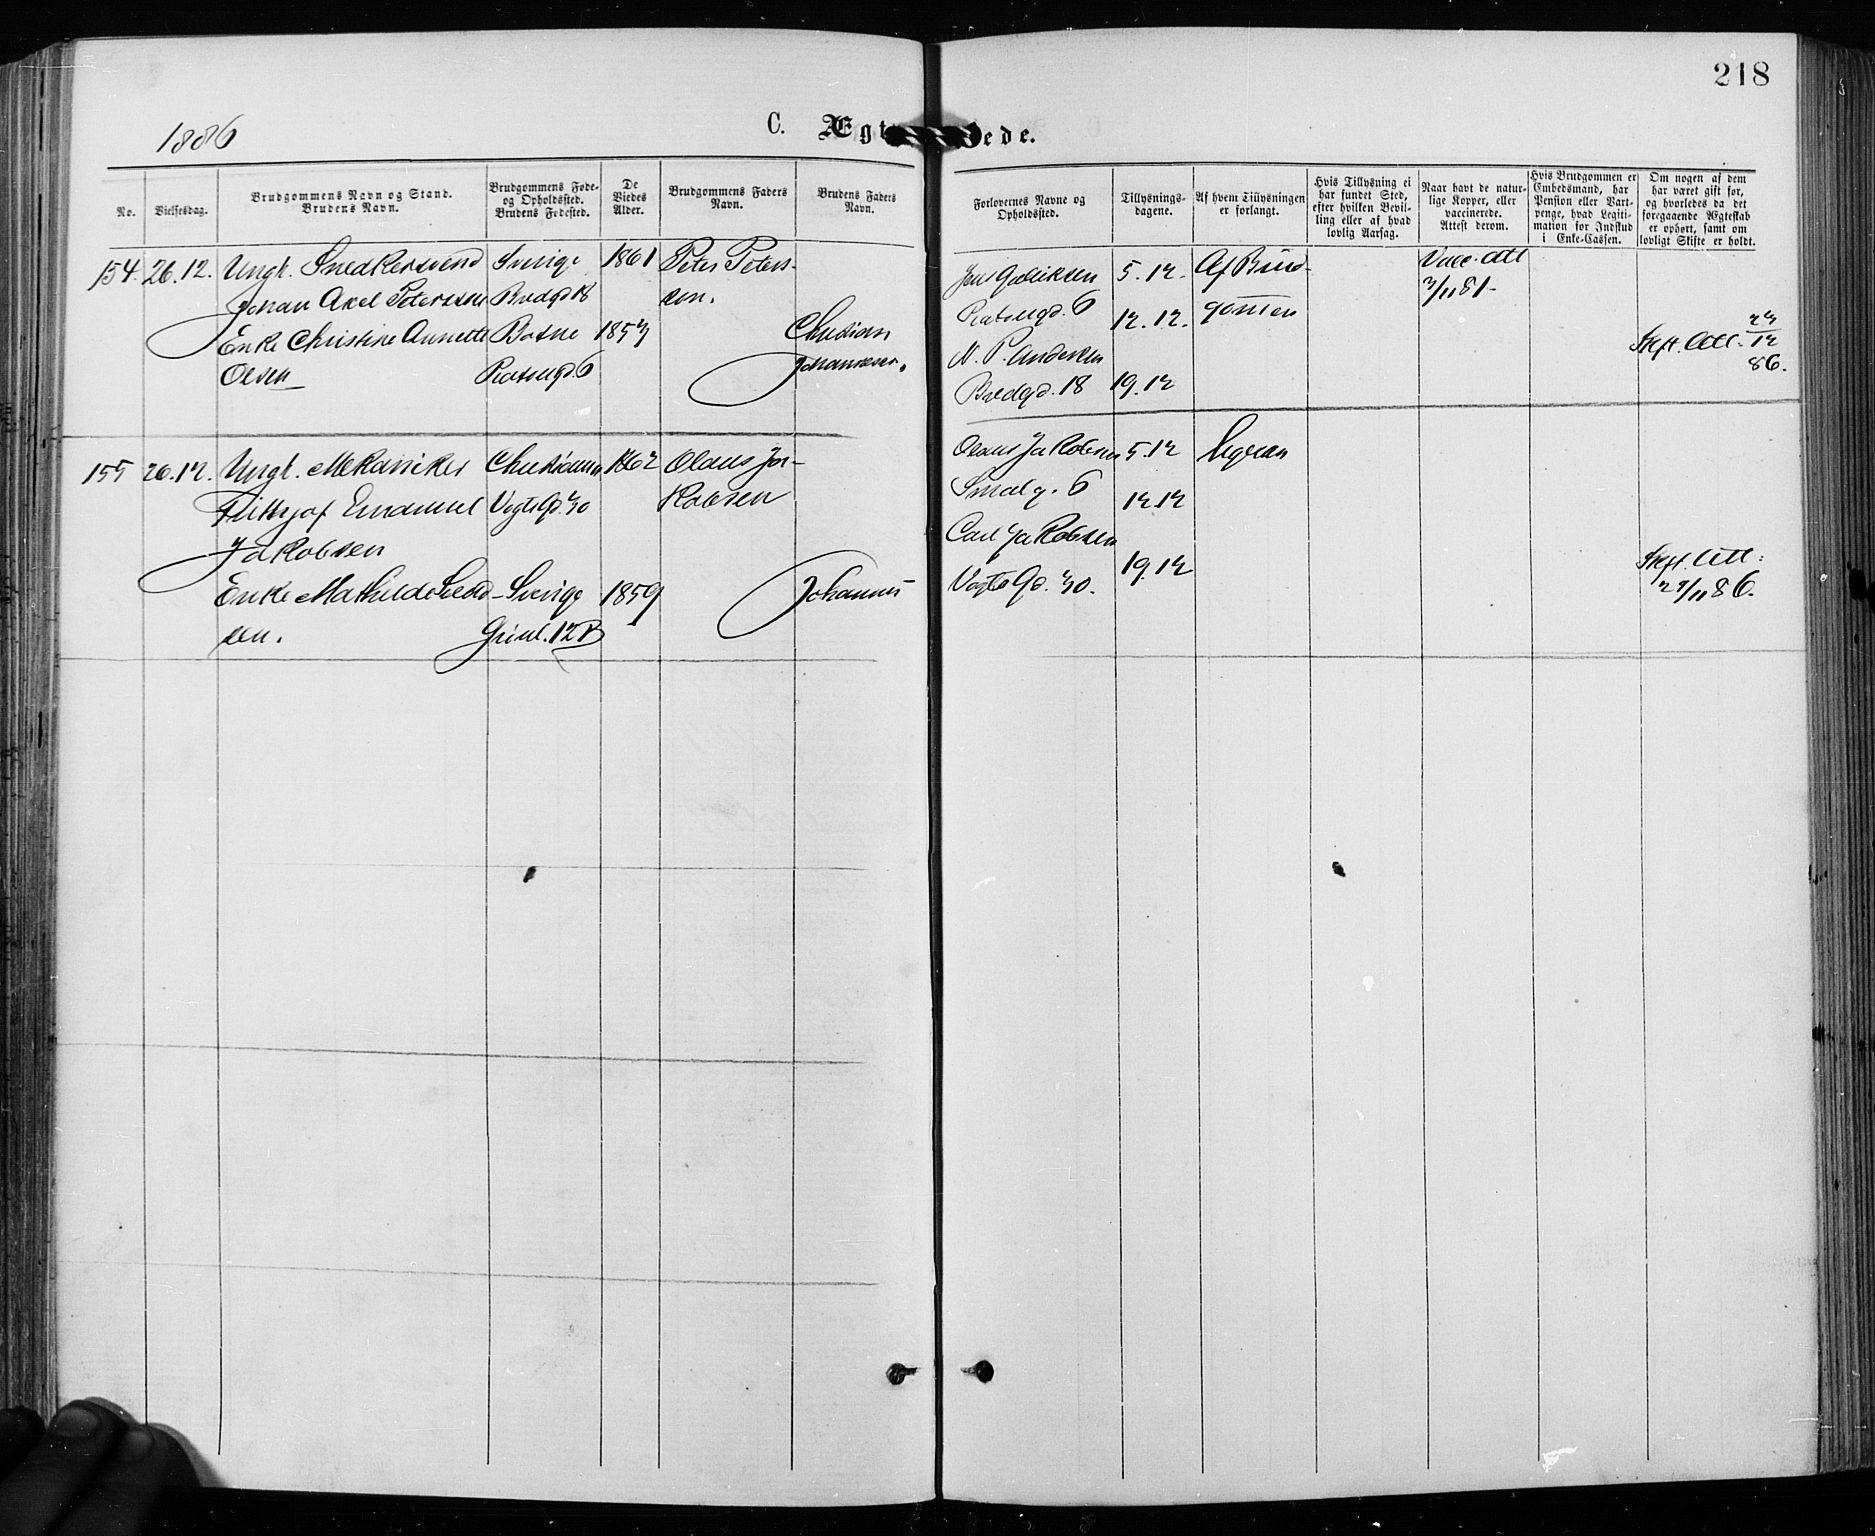 218
1886
C. Ægt
ede.
No.
Vielsesdag.
Brudgommens Navn og Stand.
Brudens Navn.
Brudgommens Føde-
og Opholdssted.
Brudens Fødested.
De
Viedes
Alder.
Brudgommens Faders
Navn.
Brudens Faders
Navn.
Forlovernes Navne og
Opholdssted.
Tillysnings-
dagene.
Af hvem Tillysningen
er forlangt.
Hvis Tillysning ei
har fundet Sted,
efter hvilken Bevil-
ling eller af hvad
lovlig Aarsag.
Naar havt de natur-
lige Kopper, eller
vaccinerede.
Attest derom.
Hvis Brudgommen er
Embedsmand, har
Pension eller Vart-
penge, hvad Legiti-
mation for Indskud
i Enke-Cassen.
Om nogen af dem
har været gift før,
og hvorledes da det
foregaaende Ægteskab
er ophørt, samt om
lovligt Skifte er holdt.
154. 26.12.
Ungk. Snedkersvend
Johan Axel Peterssen
Enke Christine Annette
Olsen
Sverige
Bredgd 18
6
1861
1857
Peter Peters-
sen.
Christian
Johannesen.
Jens
6
N. P. Andersen
Bredgd. 18
5. 12.
12. 12.
19. 12
Af Brud-
gommen
Vacc. Att
81.
Skft. Att.
12
86.
155 26.12.
Ungk. Mekaniker
Frithjof Emanuel
Jakobsen
Enke Mathilde Svend-
sen.
Christiania
Vogts Gd. 30
Sverige
12B
1862
1859
Olaus Ja-
kobsen
Johannes
Olaus Jakobsen
Smalg. 6
Carl Jakobsen
Vogts Gd. 30.
5. 12
12. 12
19. 12
Skft. Att:
86.